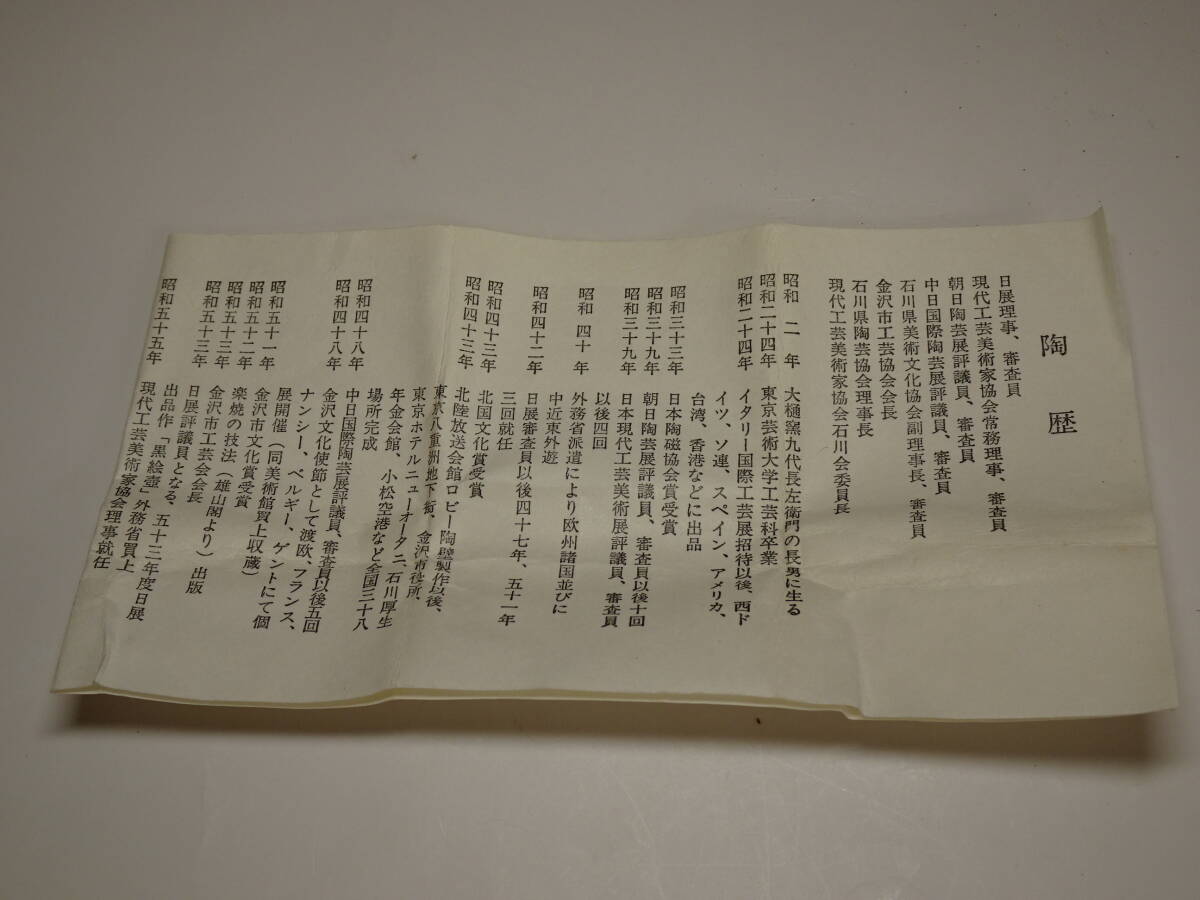 陶歴
日展理事、審査員
現代工芸美術家協会常務理事、審査員
朝日陶芸展評議員、審査員
中日国際陶芸展評議員、審査員
石川県美術文化協会副理事長、審査員
金沢市工芸協会会長
石川県陶芸協会理事長
現代工芸美術家協会石川会委員長
昭和二年 大樋窯九代長左衛門の長男に生る
昭和二十四年 東京芸術大学工芸科卒業
昭和二十四年 イタリー国際工芸展招待以後、西ド
イツ、ソ連、スペイン、アメリカ、
台湾、香港などに出品
昭和三十三年 日本陶磁協会賞受賞
昭和三十九年 朝日陶芸展評議員、審査員以後十回
昭和三十九年 日本現代工芸美術展評議員、審査員
以後四回
昭和四十年 外務省派遣により欧州諸国並びに
中近東外遊
昭和四十二年 日展審査員以後四十七年、五十一年
三回就任
昭和四十三年 北国文化賞受賞
昭和四十三年 北陸放送会館ロビー陶壁製作以後、
東京八重洲地下街、金沢市役所、
東京ホテルニューオータニ、石川厚生
年金会館、小松空港など全国三十八
場所完成
昭和四十八年 中日国際陶芸展評議員、審査員以後五回
昭和四十八年 金沢文化使節として渡欧、フランス、
ナンシー、ベルギー、ゲントにて個
展開催(同美術館買上収蔵)
昭和五十一年 金沢市文化賞受賞
昭和五十二年 楽焼の技法(雄山閣より)出版
昭和五十三年 金沢市工芸会会長
昭和五十三年 日展評議員となる、五十三年度日展
出品作「黒絵壺」外務省買上
昭和五十五年 現代工芸美術家協会理事就任